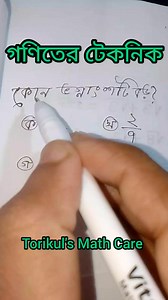 গণিতের টেকনিক
কোন ভগ্নাংশটি বড়?
ক
খ ২/৭
গ
Torikul's Math Care